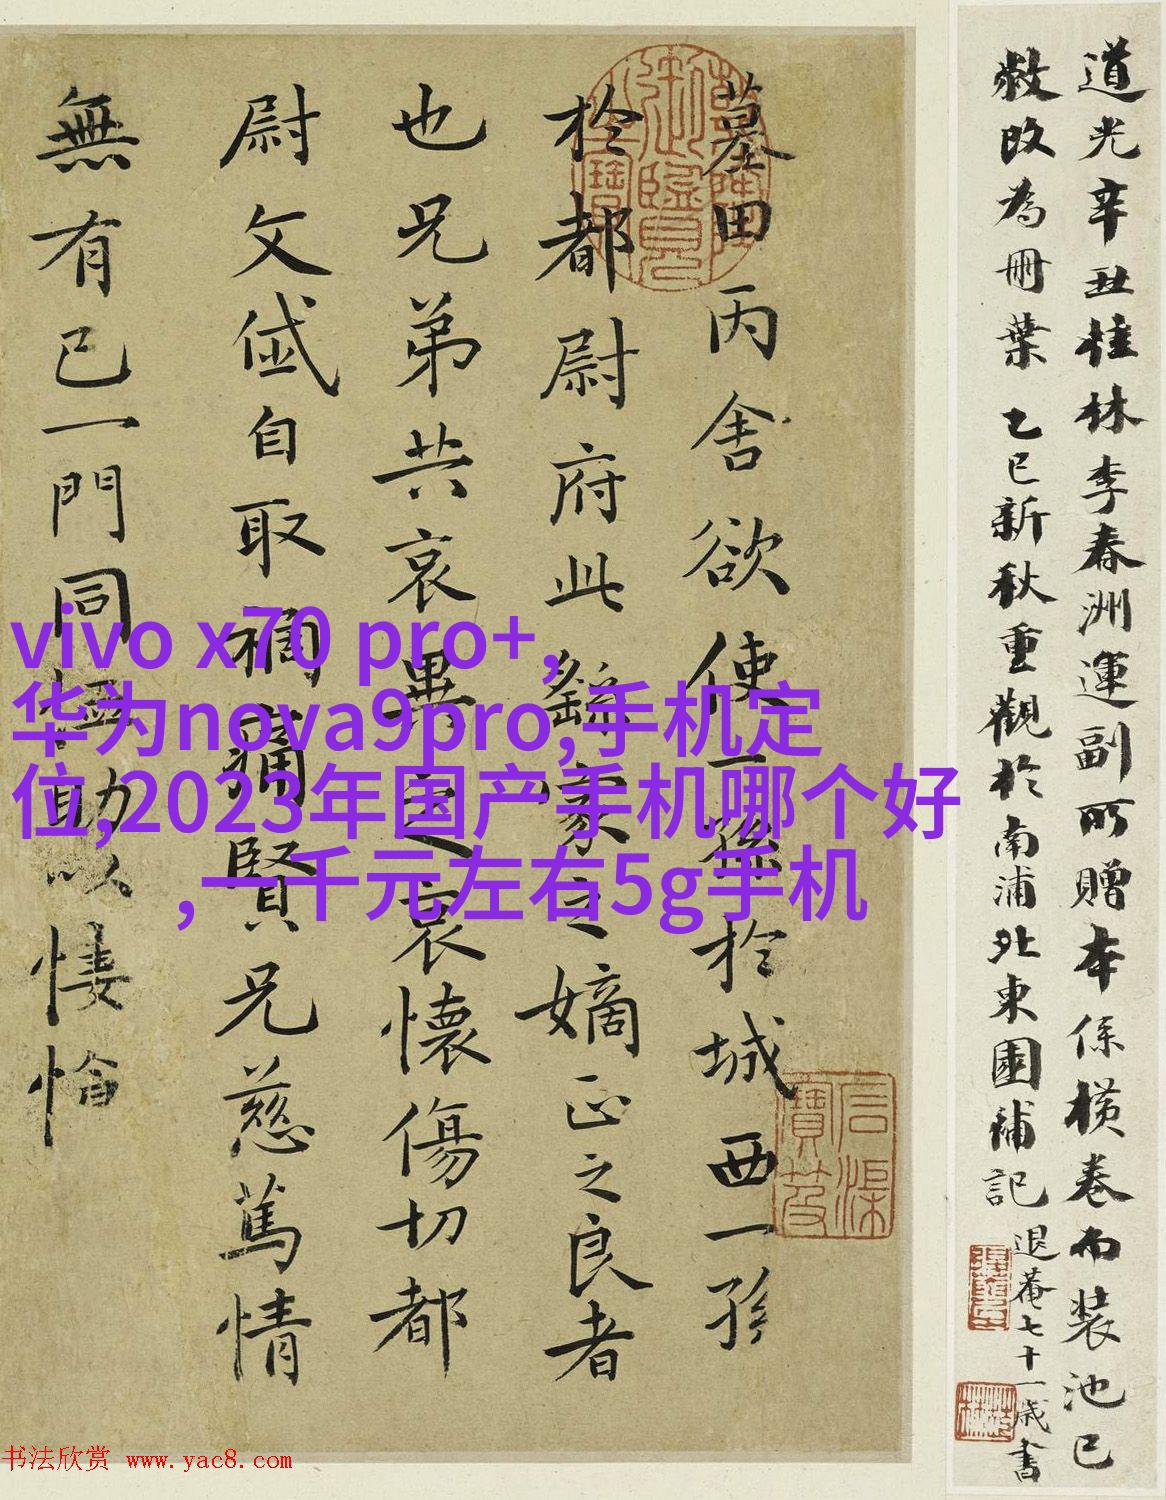 道光辛丑桂林李春洲運副所贈本係橫卷而裝池已
敝改為冊葉乙巳新秋重觀於南浦北東園補記
退菴七十一歲書
墓田丙舍欲使一孫於城西一孫
於都尉府此繇家之嫡正之良者
也兄弟共哀異之哀懷傷切都
尉文岱自取禍痛賢兄慈篤情
無有已一門同恤助以悽愴
乾隆御覽之寶
石渠寶笈
vivo x70 pro+,
华为nova9pro,手机定
位,2023年国产手机哪个好
，一千元左右5g手机
书法欣赏 www.yac8.com